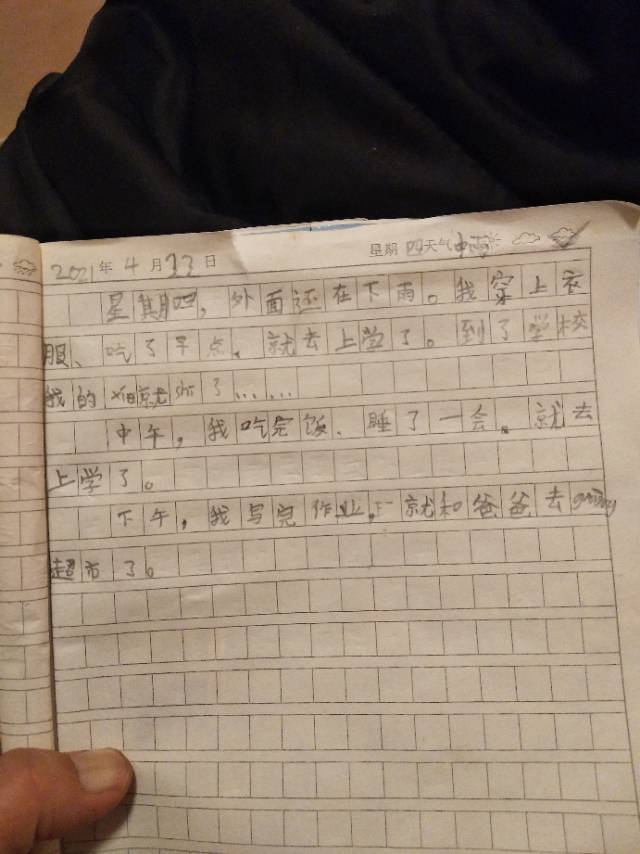 2021年4月22日 星期四天气中雨
星期四，外面还在下雨。我穿上衣
服、吃了早点、就去上学了。到了学校
我的 就 了……
中午，我吃完饭、睡了一会。就去
上学了。
下午，我写完作业，就和爸爸去
超市了。